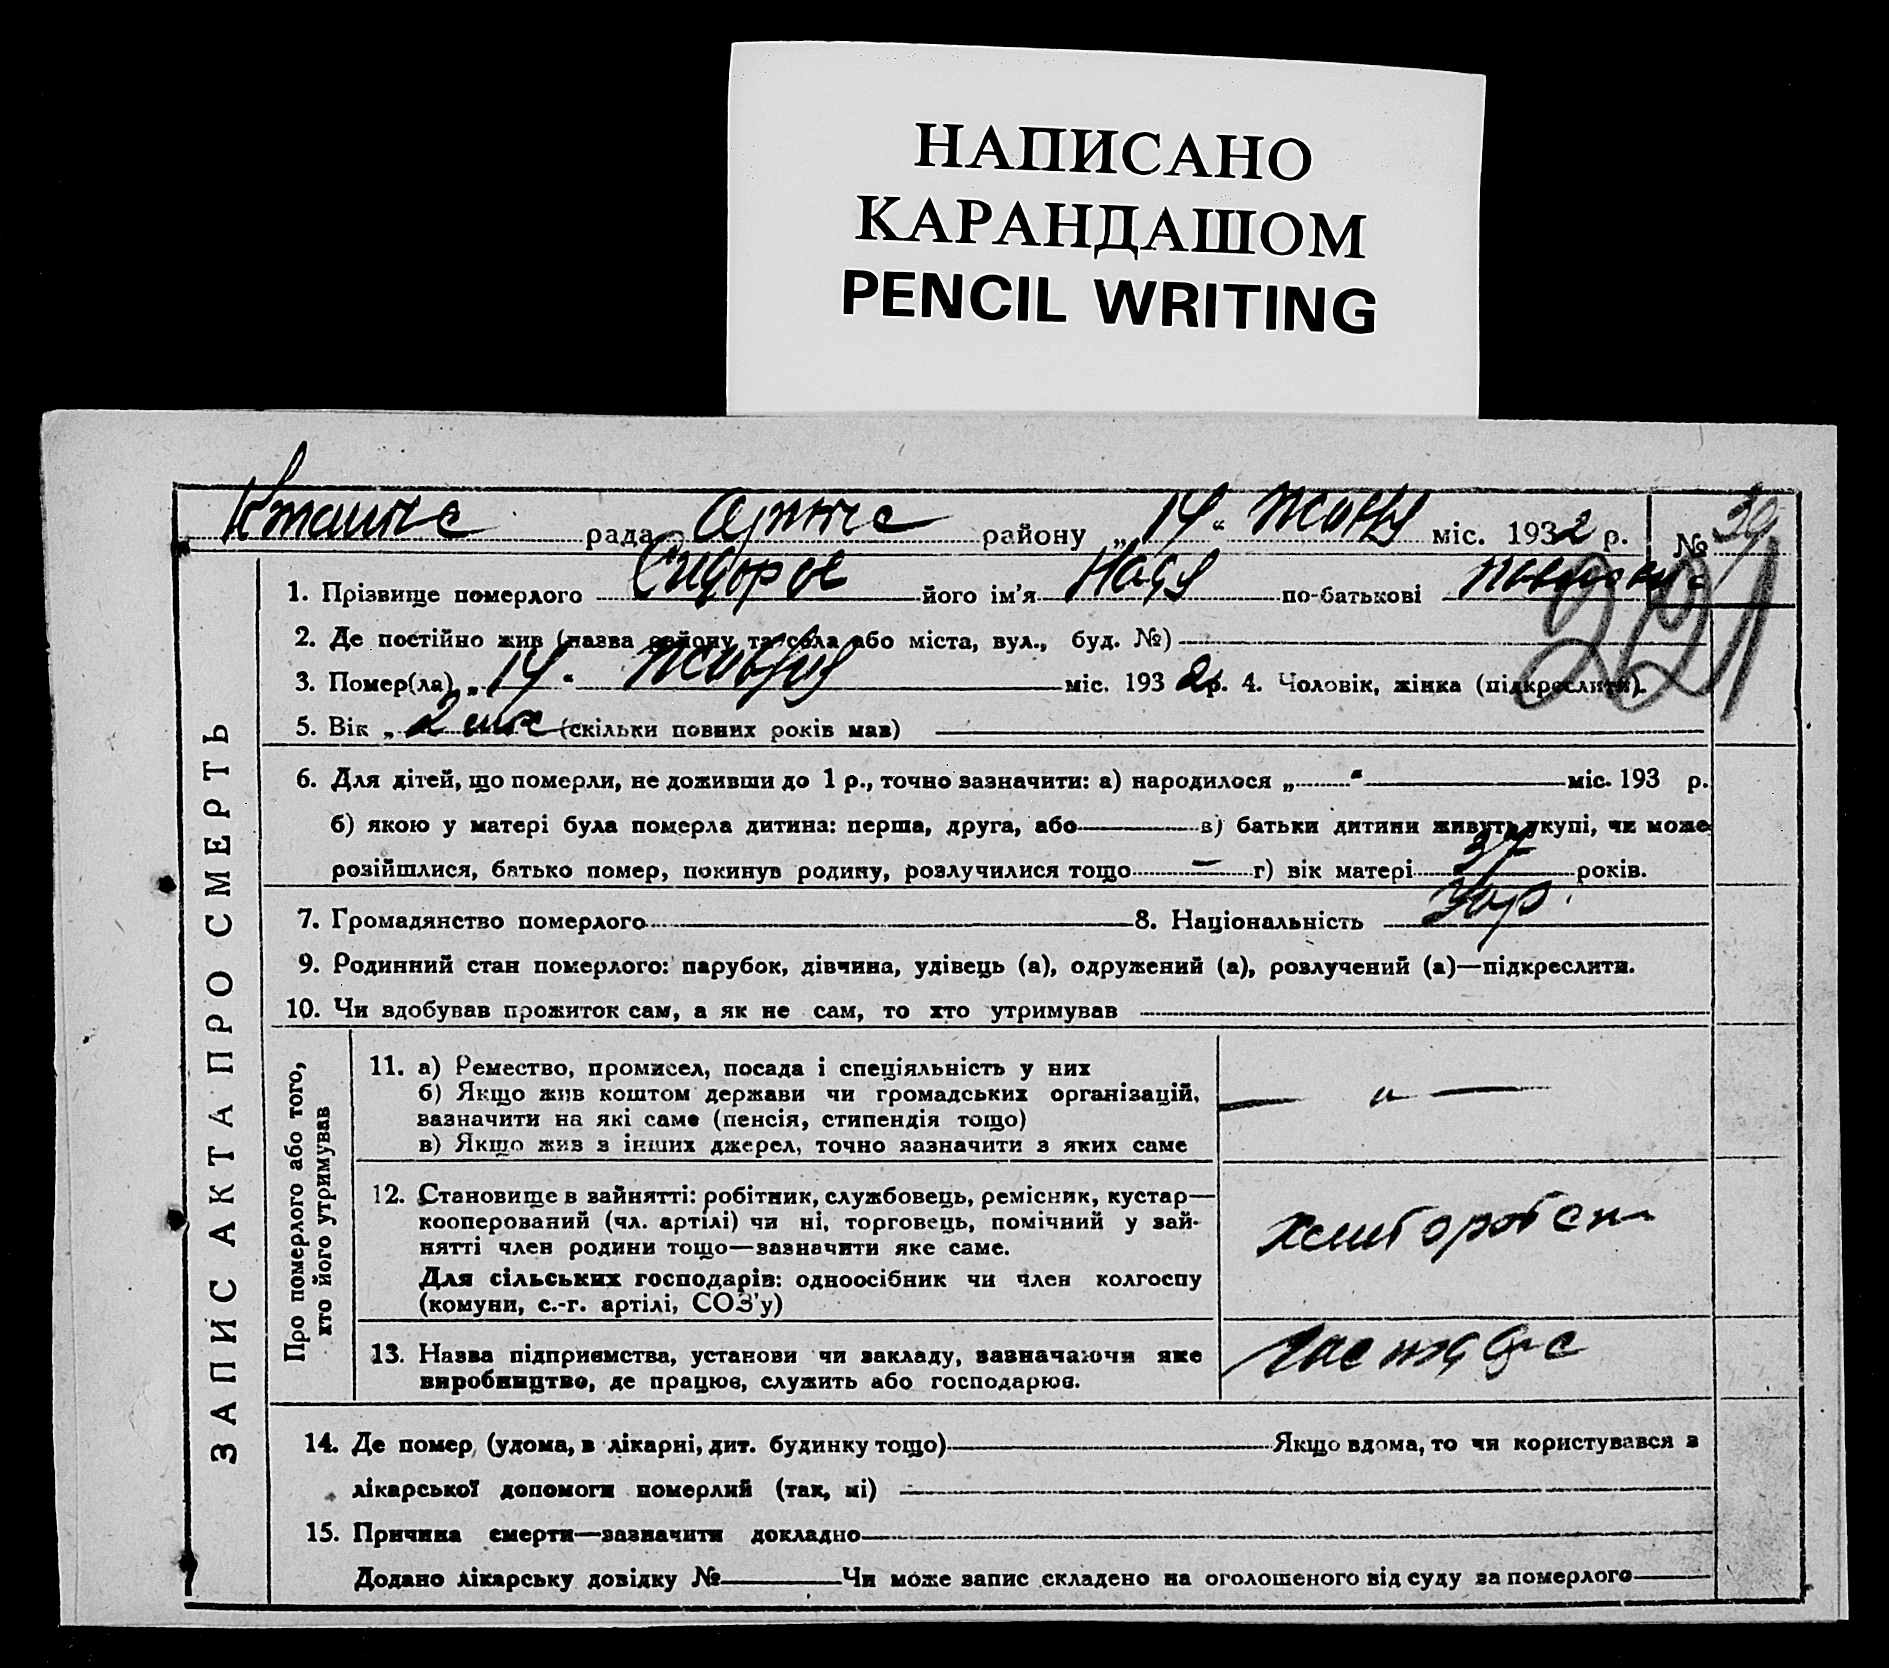 НАПИСАНО
КАРАНДАШОМ
PENCIL WRITING
рада району „14“ Жовтня міс. 1932 р. № 39
221
ЗАПИС АКТА ПРО СМЕРТЬ
1. Прізвище померлого його ім'я Надя по-батькові
2. Де постійно жив (назва району та села або міста, вул., буд. №)
3. Помер(ла) „14“ Жовтня міс. 1932 р. 4. Чоловік, жінка (підкреслити).
5. Вік „2 (скільки повних років мав)
6. Для дітей, що померли, не доживши до 1 р., точно зазначити: а) народилося „ “ міс. 193 р.
б) якою у матері була померла дитина: перша, друга, або в) батьки дитини живуть укупі, чи може
розійшлися, батько помер, покинув родину, розлучилися тощо — г) вік матері 37 років.
7. Громадянство померлого 8. Національність Укр.
9. Родинний стан померлого: парубок, дівчина, удівець (а), одружений (а), розлучений (а)—підкреслити.
10. Чи здобував прожиток сам, а як не сам, то хто утримував
Про померлого або того,
хто його утримував
11. а) Ремество, промисел, посада і спеціяльність у них
б) Якщо жив коштом держави чи громадських організацій,
зазначити на які саме (пенсія, стипендія тощо)
в) Якщо жив з інших джерел, точно зазначити з яких саме
— „ —
12. Становище в зайнятті: робітник, службовець, ремісник, кустар—
кооперований (чл. артілі) чи ні, торговець, помічний у зай-
нятті член родини тощо—зазначити яке саме.
Для сільських господарів: одноосібник чи член колгоспу
(комуни, с.-г. артілі, СОЗ'у)
13. Назва підприємства, установи чи закладу, зазначаючи яке
виробництво, де працює, служить або господарює.
14. Де помер (удома, в лікарні, дит. будинку тощо) Якщо вдома, то чи користувався з
лікарської допомоги померлий (так, ні)
15. Причина смерти—зазначити докладно
Додано лікарську довідку № Чи може запис складено на оголошеного від суду за померлого